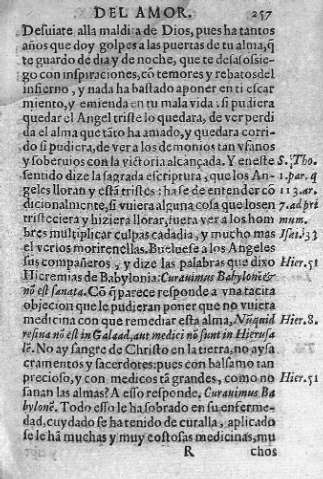 DEL AMOR. 257
Desuiate alla maldita de Dios, pues ha tantos
años que doy golpes a las puertas de tu alma, q̃
te guardo de dia y de noche, que te desasossie-
go con inspiraciones, cõ temores y rebatos del
infierno, y nada ha bastado a poner en ti escar
miento, y emienda en tu mala vida: si pudiera
quedar el Angel triste lo quedara, de ver perdi
da el alma que tãto ha amado, y quedara corri-
do si pudiera, de ver a los demonios tan vfanos
y soberuios con la victoria alcançada. Y en este S. Tho.
sentido dize la sagrada escriptura, que los An- 1. par. q
geles lloran y está tristes: ha se de entender cõ 113. ar.
dicionalmente, si vuiera alguna cosa que los en 7. ad pri
tristeciera y hiziera llorar, fuera ver a los hom mum.
bres multiplicar culpas cada dia, y mucho mas Isai. 33
el verlos morir en ellas. Bueluese a los Angeles
sus compañeros, y dize las palabras que dixo Hier. 51
Hieremias de Babylonia: Curauimus Babylonẽ &
nõ est sanata. Cõ q̃ parece responde a vna tacita
objecion que le pudieran poner que no vuiera
medicina con que remediar esta alma, Nũquid Hier. 8.
resina nõ est in Galaad, aut medici nõ sunt in Hierusa
lẽ. No ay sangre de Christo en la tierra, no ay sa
cramentos y sacerdotes: pues con balsamo tan
precioso, y con medicos tã grandes, como no Hier. 51
sanan las almas? A esso responde, Curauimus Ba
bylonẽ. Todo esso le ha sobrado en su enferme-
dad, cuydado se ha tenido de curalla, aplicado
se le hã muchas y muy costosas medicinas, mu
R chos